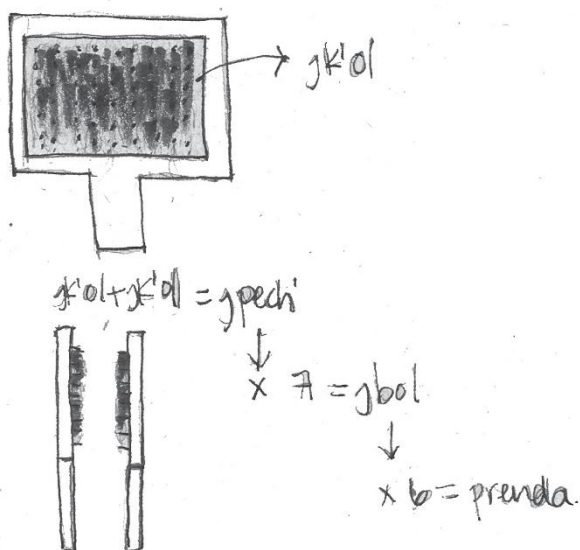 jk'ol
jk'ol+jk'ol = jpech'
x 7 = jbol
x 6 = prenda.